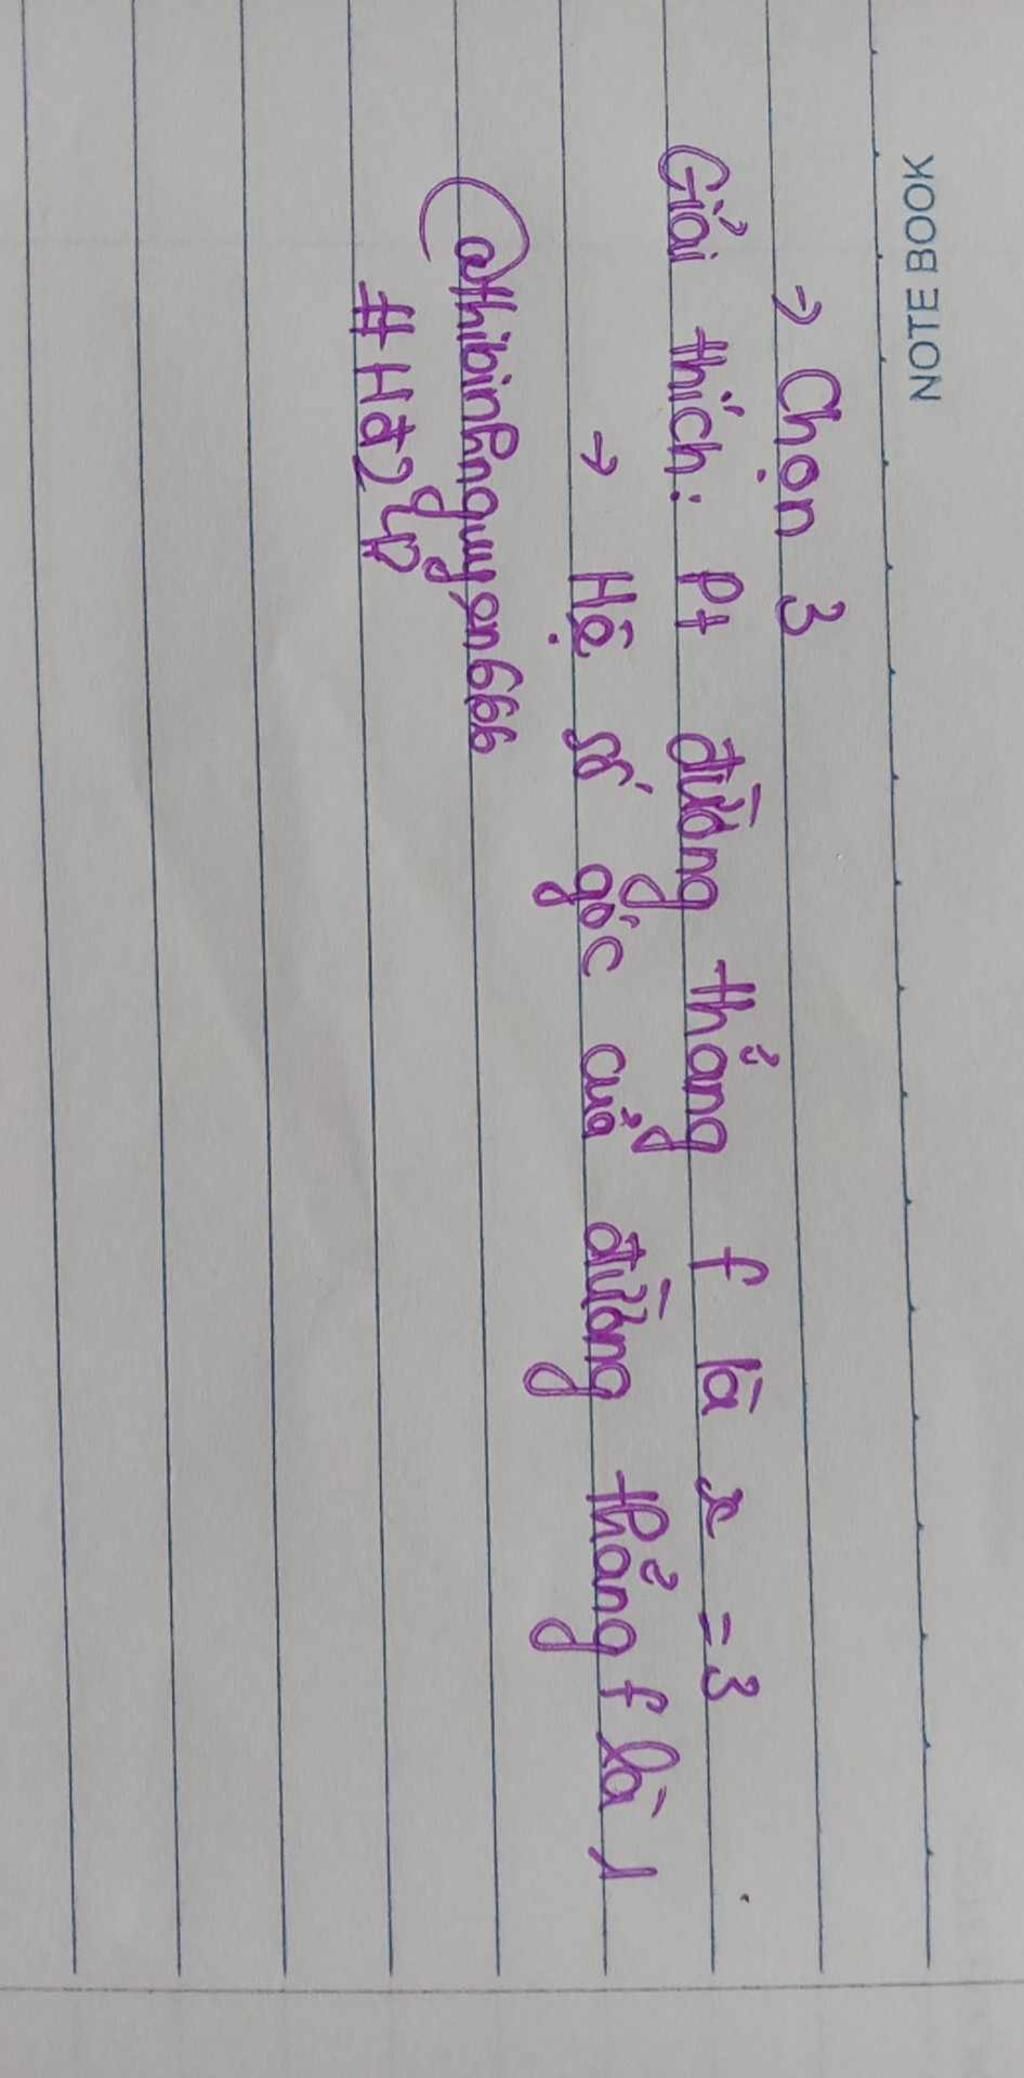 NOTE BOOK
→ Chọn 3
Giải thích: Pt đường thẳng f là x = 3
→ Hệ số góc của đường thẳng f là 1
@thibinhnguyen666
#Hđ247